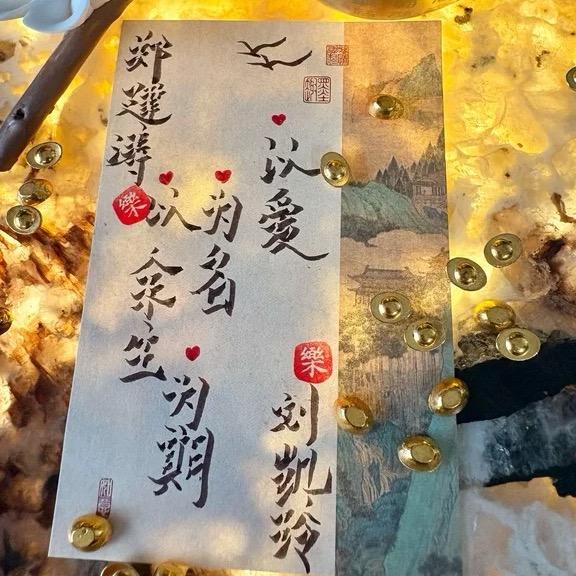 以愛
为名
以余生
为期
樂
刘凯玲
郑蓮
樂